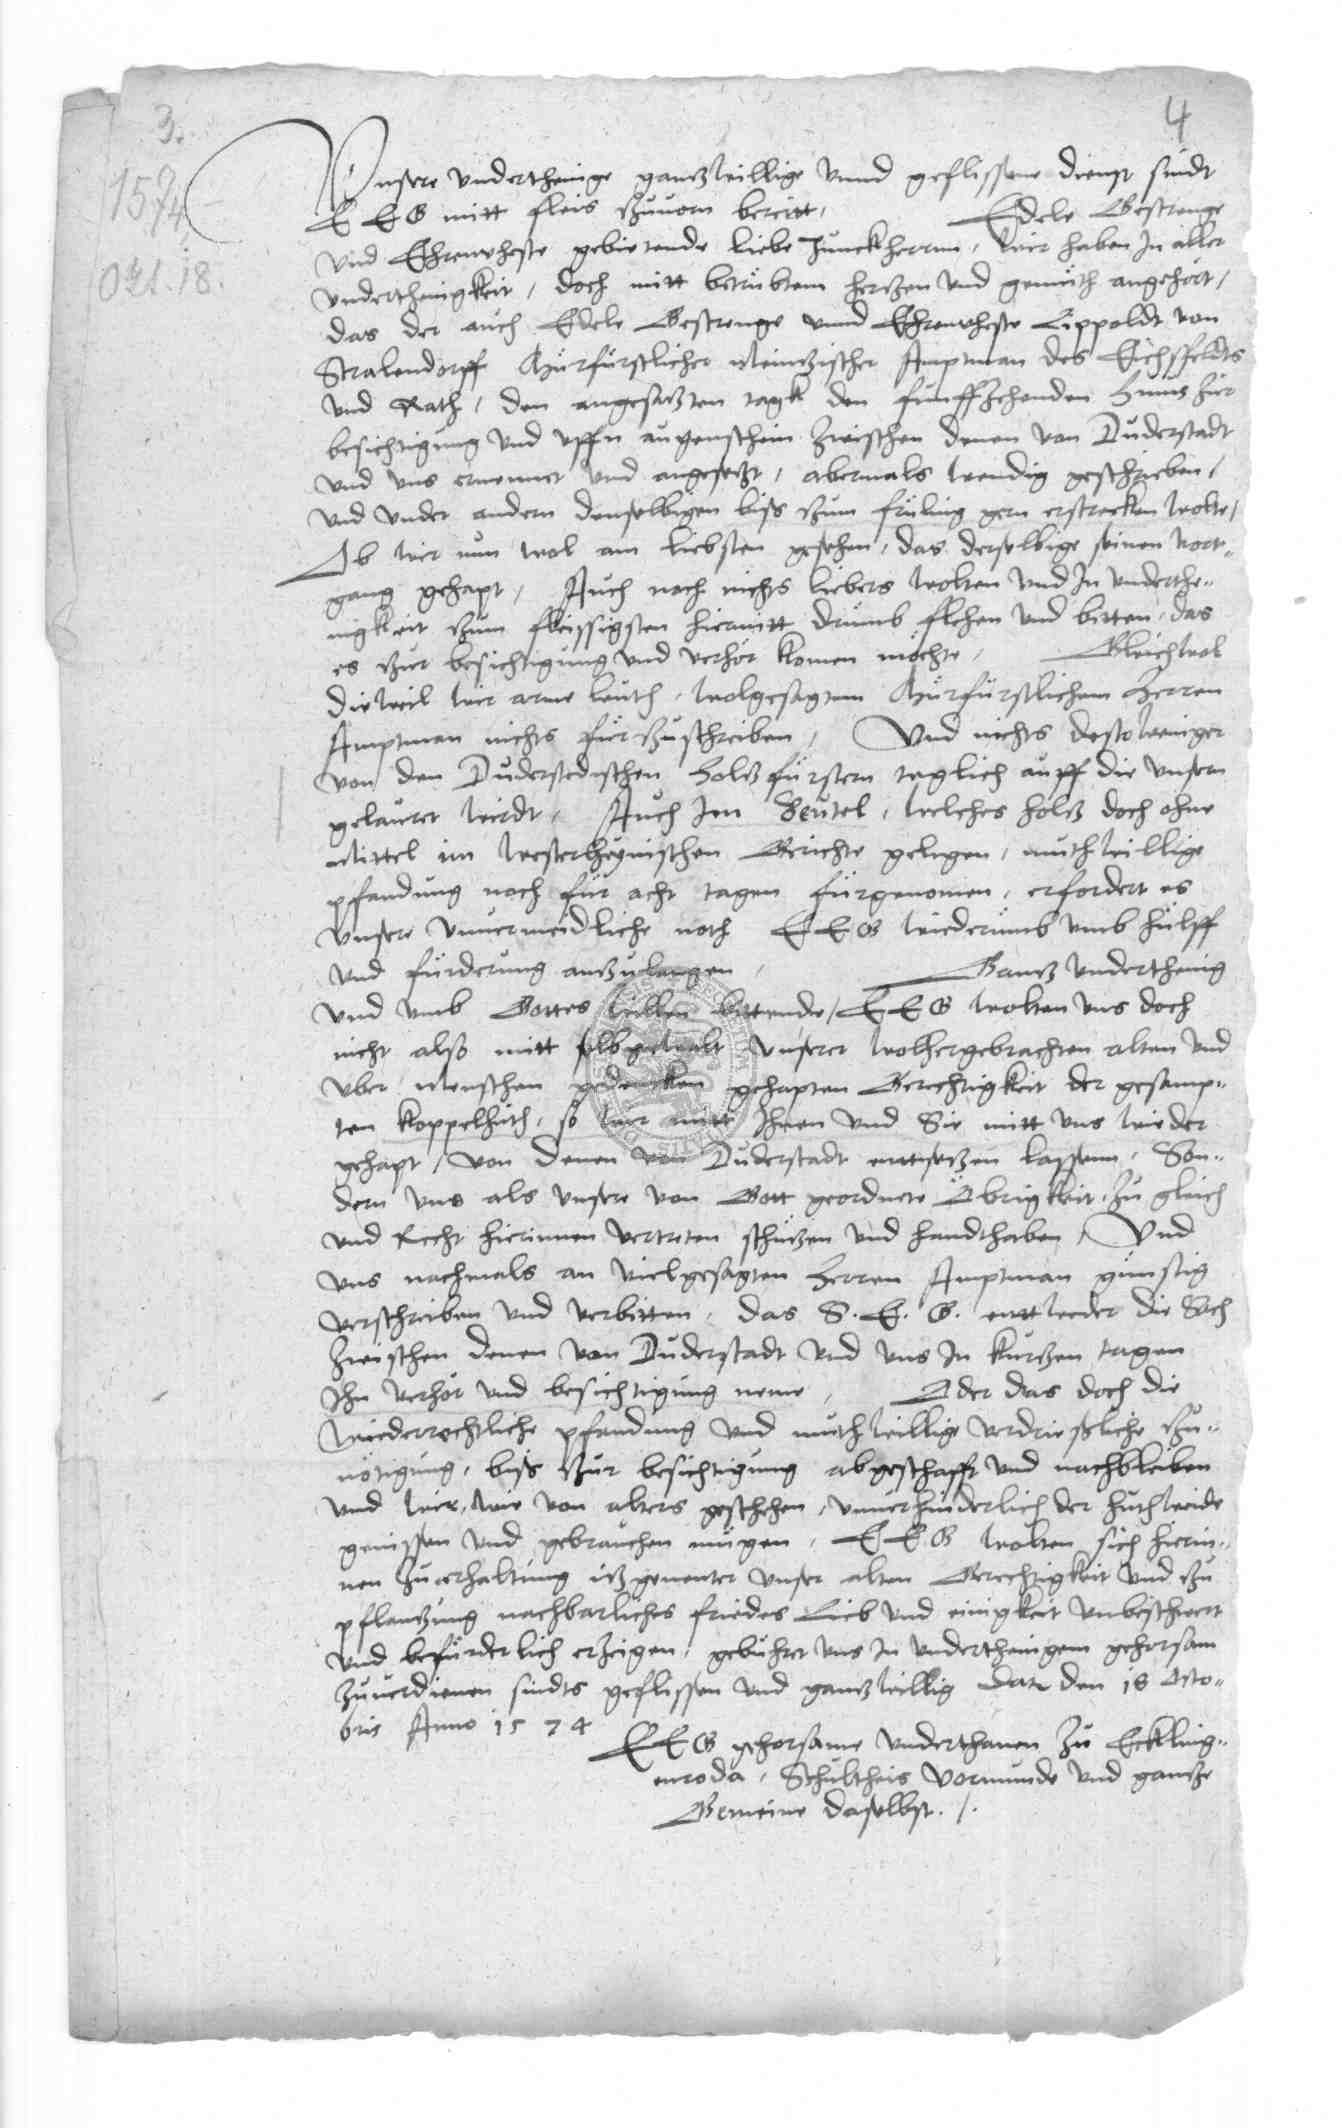 3.
4
1574
Okt. 18.
Unsere underthenige gantzwillige unnd geflissene dienst sindt
E E G mitt fleis zuuorn bereitt, Edele Gestrenge
und Ehrnveheste gebietende liebe Junckherrnn, wir haben in aller
underthenigkeit, doch mitt betrübtem hertzen und gemüth angehört,
das der auch Edele Gestrenge unnd Ehrnveheste Lippoldt von
Stralendorff Churfürstlicher Meintzischer Amptman des Eichsfeldts
und Rath, den angesatzten tagk den funffzehenden huius zur
besichtigung und uffn augenschein zwischen denen von Duderstadt
und uns ernennet und angesetzt, abermals wendig geschrieben,
und under andern denselbigen biss zum früling gern erstrecken wolte,
Ob wir nun wol am liebsten gesehen, das derselbige seinen vort-
gang gehapt, Auch noch nichts liebers wolten und in underthe-
nigkeit zum fleissigsten hiermitt drumb flehen und bitten, das
es zur besichtigung und verhör komen möchte, Gleichwol
dieweil wir arme leuth, wolgesagtem Churfürstlichem Herren
Amptman nichts fürzuschreiben, Und nichts destoweniger
von den Duderstedischen Holtzfürstern teglich auff die unsern
gelauret wirdt, Auch im Seutel, welches holtz doch ohne
Mittel im Westerhagenischen Gerichte gelegen, muthwillige
pfandung noch für acht tagen fürgenomen, erfordert es
unsere unuermeidliche noth E E G wiederumb umb hülff
und fürderung anzulangen, Gantz underthenig
und umb Gottes willen bittende, E E G wolten uns doch
nicht also mitt selbgewalt unserer wolhergebrachten alten und
uber menschen gedencken gehapten Gerechtigkeit der gesamp-
ten koppelhuth, so wir mitt Ihnen und Sie mitt uns wieder
gehapt, von denen von Duderstadt enttsetzen lassenn, Son-
dern uns als unsere von Gott geordnete Obrigkeit, zu gleich
und Recht hierinnen vertreten schützen und handthaben, Und
uns nachmals an vielgesagten Herren Amptman günstig
verschreiben und verbitten, das S. E. G. enttweder die Sach
zwischen denen von Duderstadt und uns in kurtzen tagen
Ihn verhör und besichtigung neme, Oder das doch die
wiederrechtliche pfandung und muthwillige verdriessliche zu-
nötigung, biss zur besichtigung abgeschafft und nachbleiben
und wir, wie von alters geschehen, unuerhinderlich der huthweide
geniessen und gebrauchen mügen, E E G wolten sich hierin-
nen zu erhaltung itzgenenter unser alten Gerechtigkeit und zu
pflantzung nachbarliches friedes Lieb und einigkeit unbeschwert
und befürderlich erzeigen, gebühret uns in underthenigem gehorsam
zuuerdienen sindts geflissen und gantzwillig Datum den 18 Octo-
bris Anno 1574
E E G gehorsame underthanen zu Eckling-
enroda, Schultheis Vormunde und gantze
Gemeine daselbst. /.